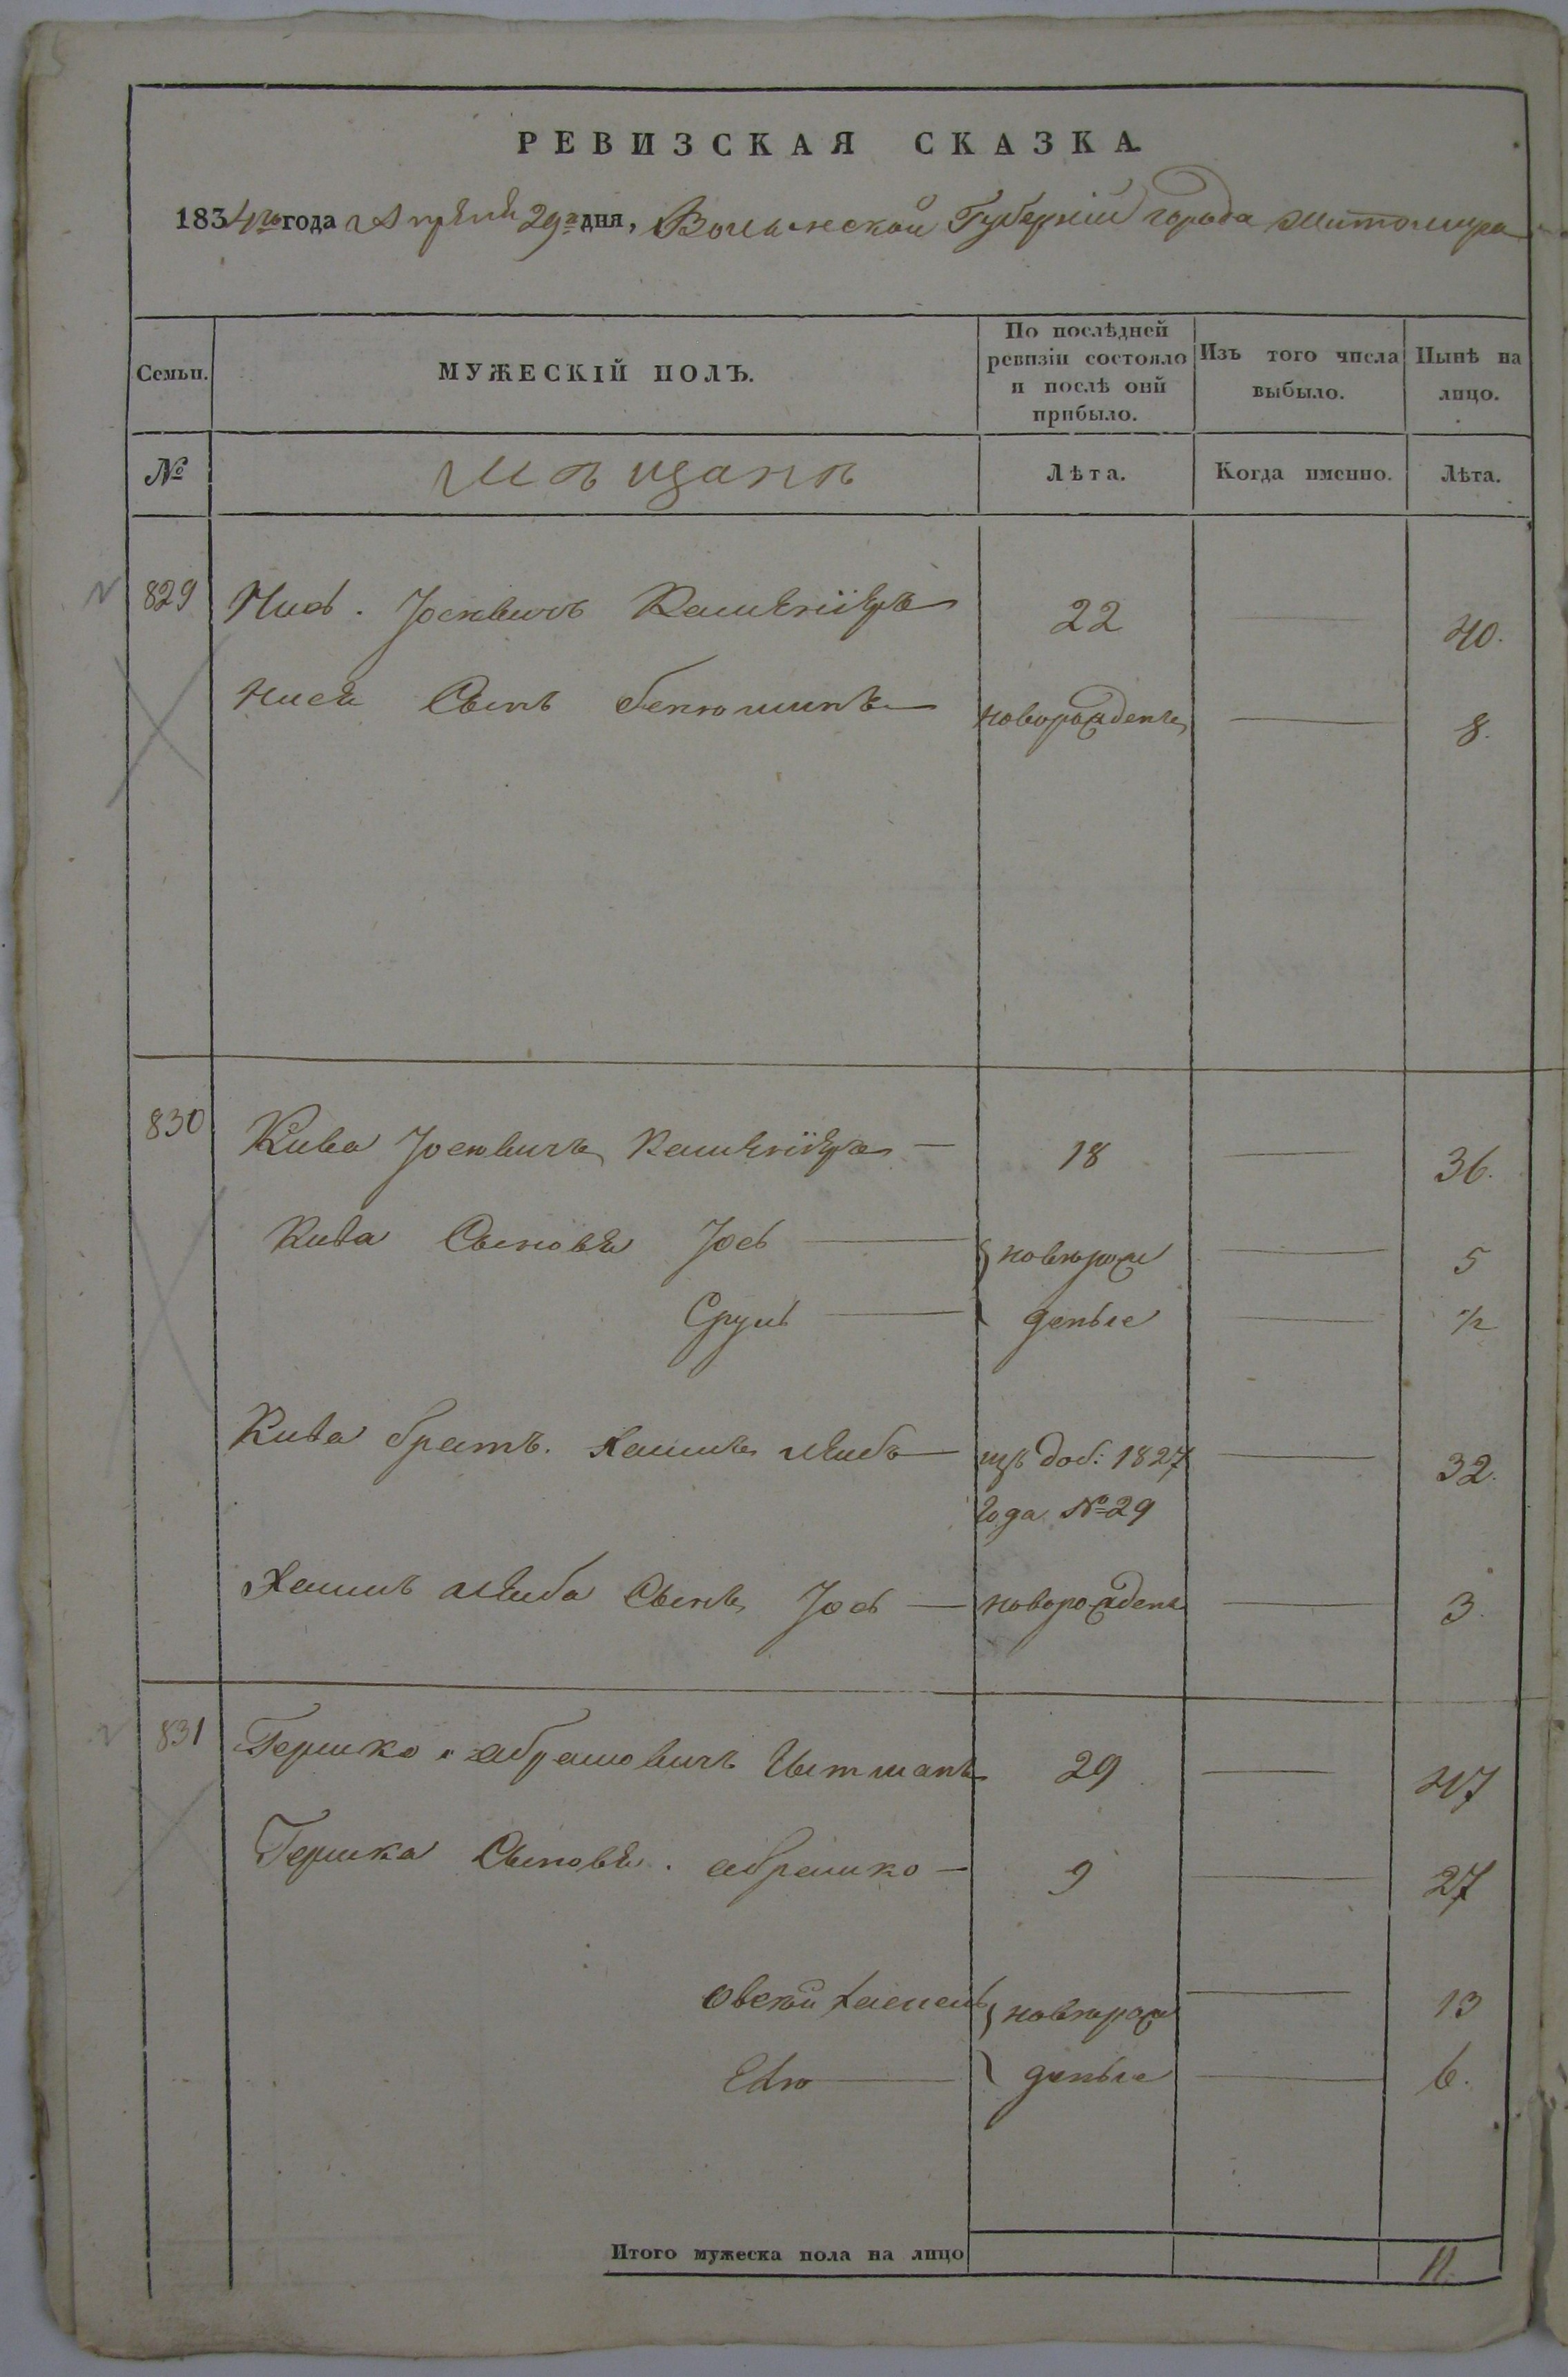 РЕВИЗСКАЯ СКАЗКА
1834го года Апреля 29го дня, Волынской Губерніи города Житомира
Семьи. МУЖЕСКІЙ ПОЛЪ. По послѣдней ревизіи состояло и послѣ оній прибыло. Изъ того числа выбыло. Нынѣ на лицо.
№ Мѣщанъ Лѣта. Когда именно. Лѣта.
829 Нись. Іосьвичъ 22 40.
Нися Сынъ Бенюминъ новорожденъ 8.
830 Кива Іосьвичъ 18 36.
Кива Сыновя Іось новорож 5
Сруль деные 1/2
Кива братъ. Хаимъ Лейбъ изъ доб: 1827 32.
года №29
Хаимъ Лейба Сынъ Іось новорожденъ 3.
831 Гершко Абрамовичъ 29 47
Гершка Сыновя. Абрамко 9 27
Овсей новорож 13
деные 6.
Итого мужеска пола на лицо 11.